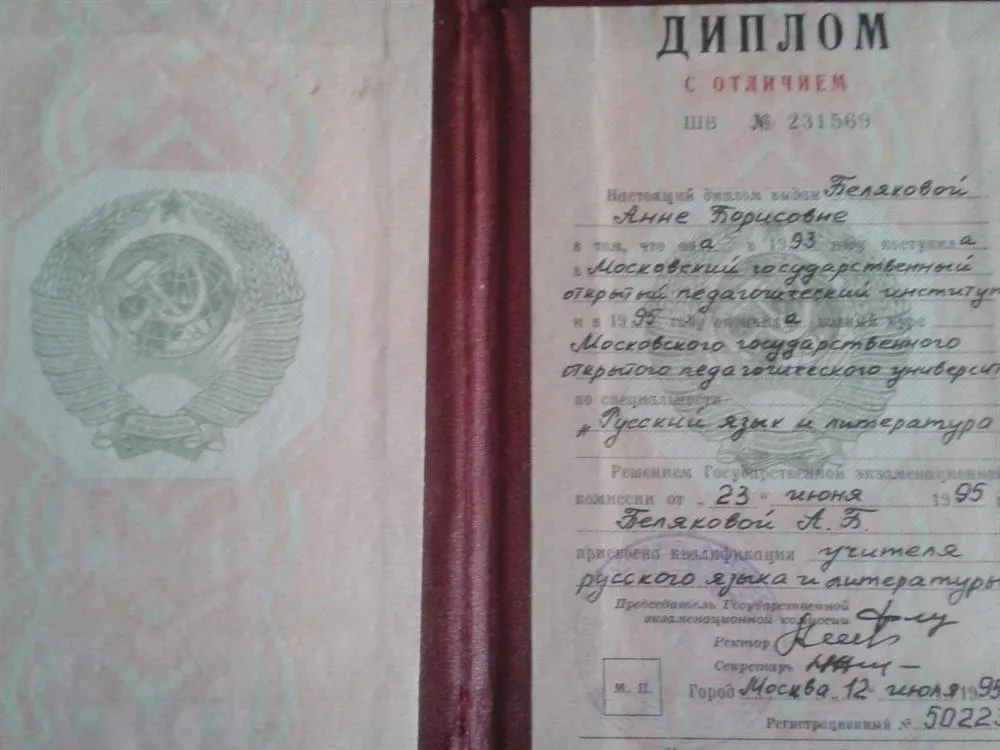 ДИПЛОМ
С ОТЛИЧИЕМ
ШВ № 231569
Настоящий диплом выдан Беляковой
Анне Борисовне
в том, что она в 1993 году поступила
в Московский государственный
открытый педагогический институт
и в 1995 году окончила полный курс
Московского государственного
открытого педагогического университ
по специальности
„Русский язык и литература
Решением Государственной экзаменационной
комиссии от „23" июня 1995
Беляковой А.Б.
присвоена квалификация учителя
русского языка и литературы
Председатель Государственной
экзаменационной комиссии
Ректор
Секретарь
М. П.
Город Москва, 12" июля 1995
Регистрационный № 50223